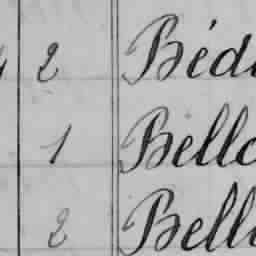 2 Béd
1 Bell
2 Bell